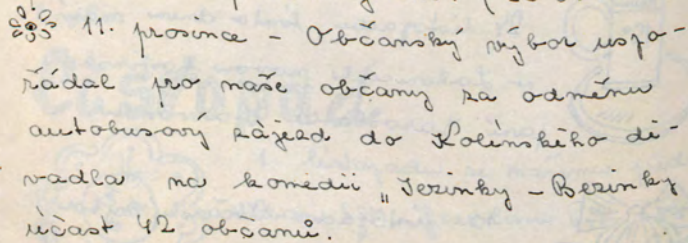 11. prosince - Občanský výbor uspo-
řádal pro naše občany za odměnu
autobusový zájezd do Kolínského di-
vadla na komedii „Jezinky - Bezinky
účast 42 občanů.